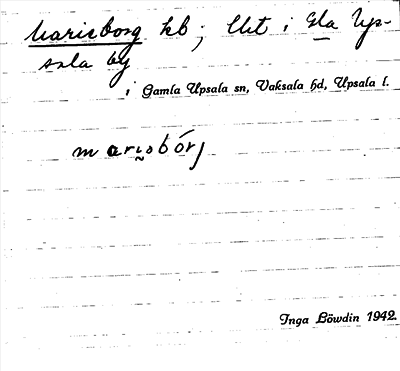 Marieborg hb; Utt i Gla Up-
sala by
i Gamla Upsala sn, Vaksala hd, Upsala l.
mariəbórj
Inga Löwdin 1942.